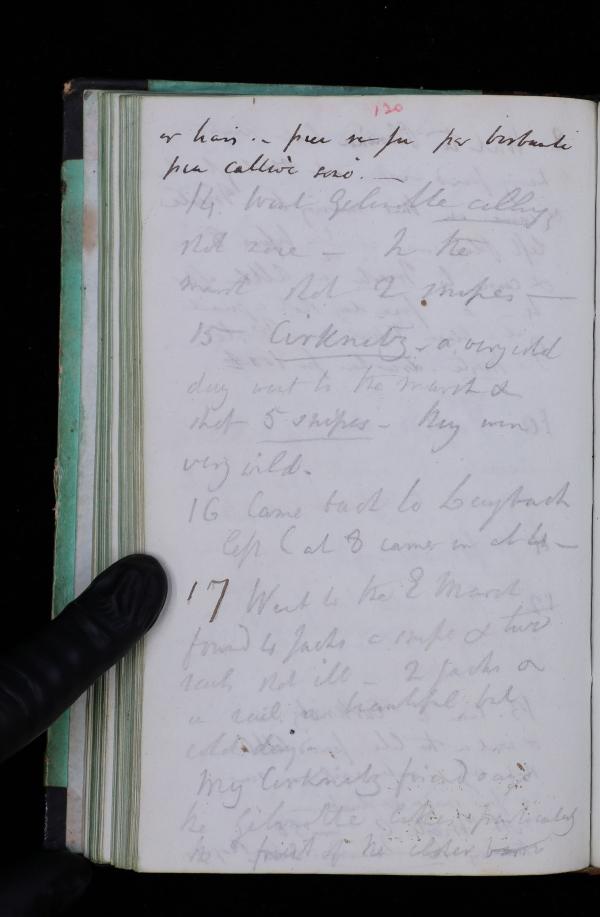 120
or hair. - piu se fu per birbanti
piu
14 Went Gelinotte calling
shot one - In the
marsh shot 2 snipes -
15 Cirknitz - a very cold
day went to the marsh &
shot 5 snipes - They were
very wild.
16 Came back to Laybach
left C at 8 came in at 4 -
17 Went to the E Marsh
found 4 Jacks a snipe & two
rails shot ill - 2 Jacks &
a rail a beautiful but
cold day
My Cirknitz friend says
the Gelinotte particularly
the fruit of the elder